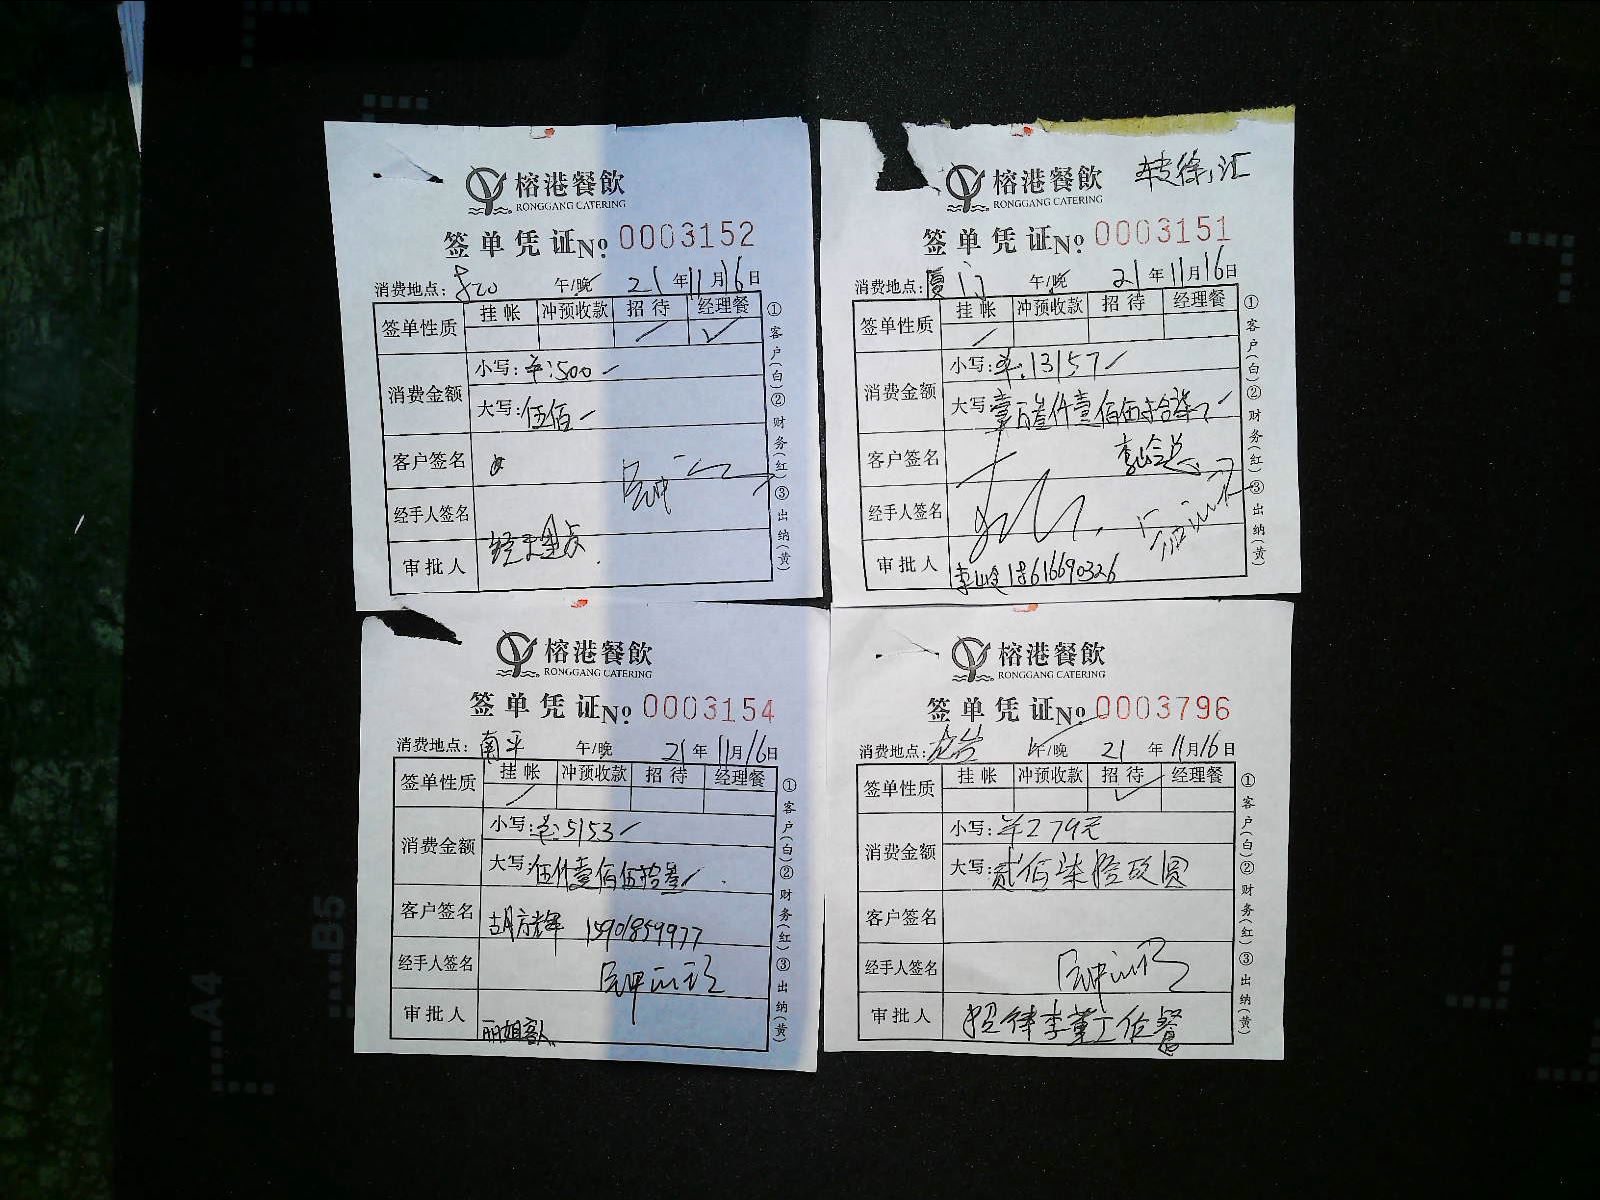 榕港餐飲
RONGGANG CATERING
签单凭证 No 0003152
消费地点: 820 午/晚 21年11月16日
签单性质 挂帐 冲预收款 招待 经理餐
消费金额 小写: ¥:500
大写: 伍佰
客户签名
经手人签名
审批人
①客户(白)②财务(红)③出纳(黄)
转徐汇
榕港餐飲
RONGGANG CATERING
签单凭证 No 0003151
消费地点: 厦门 午/晚 21年11月16日
签单性质 挂帐 冲预收款 招待 经理餐
消费金额 小写: ¥:13157
大写: 壹万叁仟壹佰伍拾柒
客户签名
经手人签名
审批人 18616690326
①客户(白)②财务(红)③出纳(黄)
榕港餐飲
RONGGANG CATERING
签单凭证 No 0003154
消费地点: 南平 午/晚 21年11月16日
签单性质 挂帐 冲预收款 招待 经理餐
消费金额 小写: ¥:5153
大写: 伍仟壹佰伍拾叁
客户签名 15901859977
经手人签名
审批人 丽姐客人
①客户(白)②财务(红)③出纳(黄)
榕港餐飲
RONGGANG CATERING
签单凭证 No 0003796
消费地点: 龙岩 午/晚 21年11月16日
签单性质 挂帐 冲预收款 招待 经理餐
消费金额 小写: ¥279元
大写: 贰佰柒拾玖圆
客户签名
经手人签名
审批人 招待李董工作餐
①客户(白)②财务(红)③出纳(黄)
B5
A4